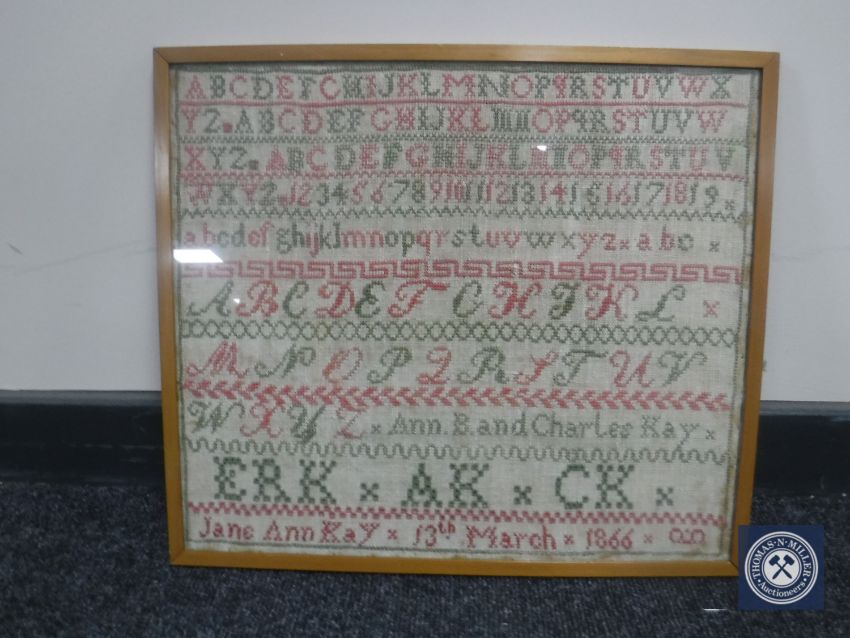 ABCDEFGHIJKLMNOPQRSTUVWX
YZ.ABCDEFGHIJKLMNOPQRSTUVW
XYZ.ABCDEFGHIJKLMNOPQRSTUV
WXYZ.12345678910111213141516171819x
abcdefghijklmnopqrstuvwxyzxabcx
ABCDEFGHIJKLx
MNOPQRSTUV
WXYZ x Ann. B. and Charles Kay x
ERK x AK x CK x
Jane Ann Kay x 13th March x 1866 x
THOMAS·N·MILLER
Auctioneers